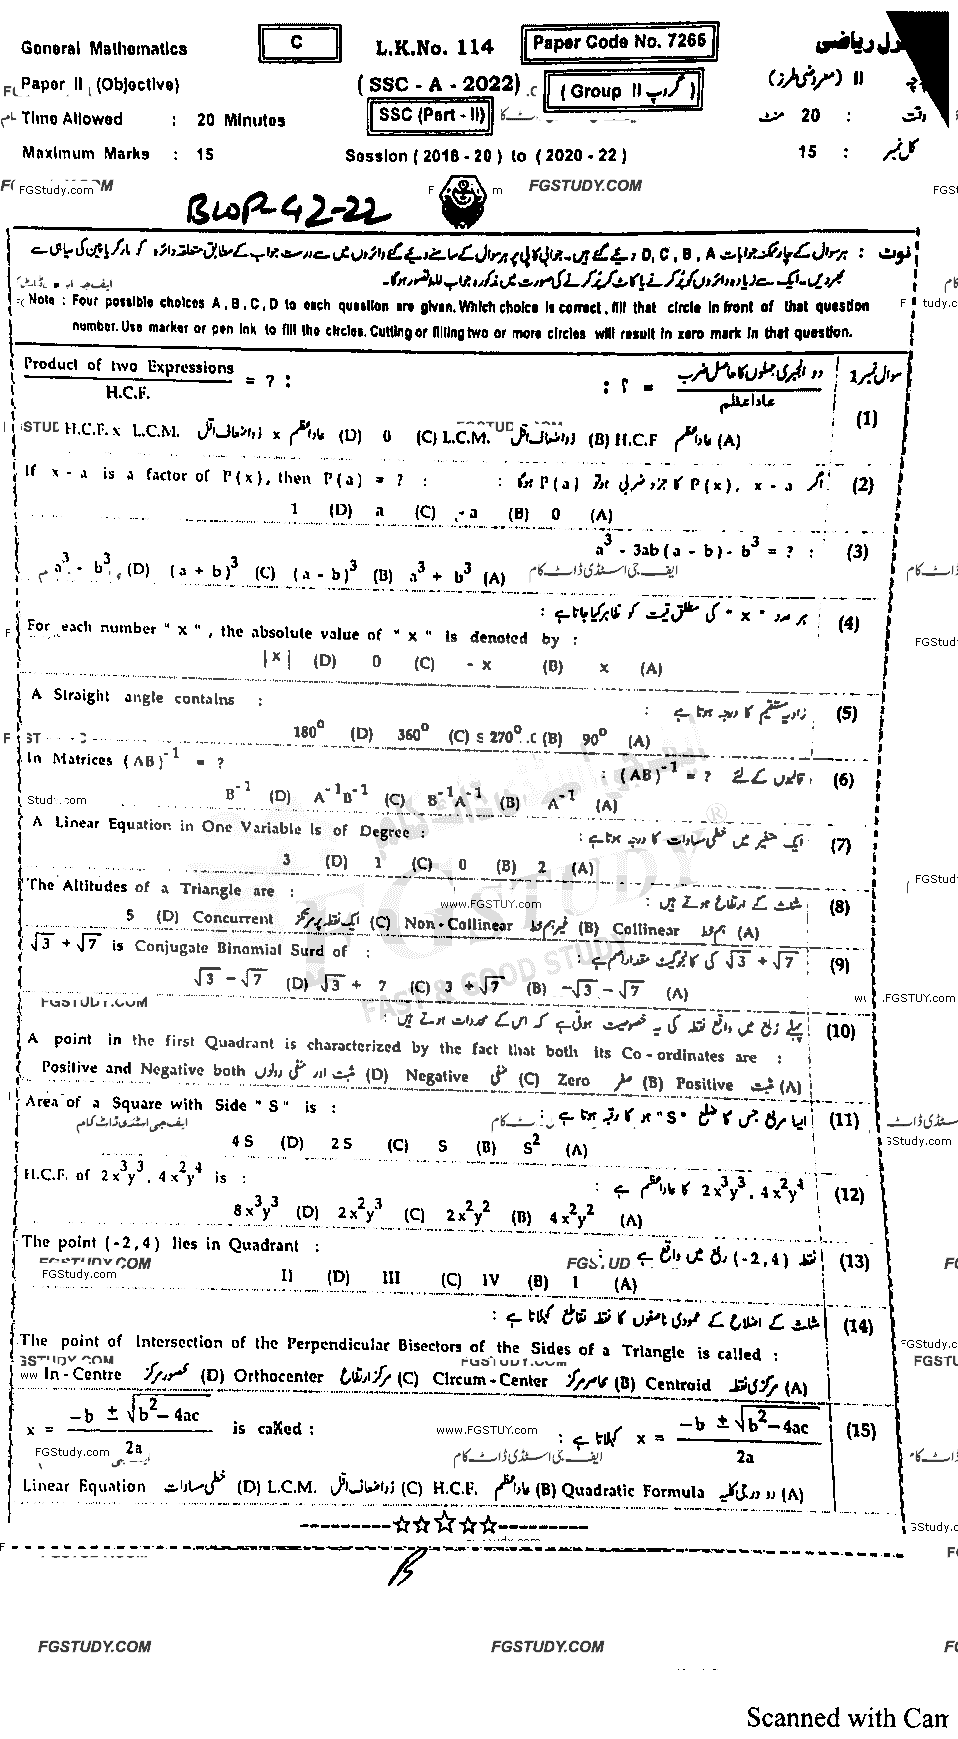 General Mathematics
C
L.K.No. 114
Paper Code No. 7266
Paper II (Objective)
(SSC - A - 2022)
(Group II گروپ)
II (معروضی طرز)
Time Allowed : 20 Minutes
SSC (Part - II)
وقت : 20 منٹ
Maximum Marks : 15
Session (2018 - 20) to (2020 - 22)
کل نمبر : 15
FGStudy.com
FGSTUDY.COM
BWP-42-22
نوٹ : ہر سوال کے چار ممکنہ جوابات D, C, B, A دیئے گئے ہیں۔ جوابی کاپی پر ہر سوال کے سامنے دیئے گئے دائروں میں سے درست جواب کے مطابق متعلقہ دائرہ کو مارکر یا پین کی سیاہی سے
بھر دیں۔ ایک سے زیادہ دائروں کو پُر کرنے یا کاٹ کر پُر کرنے کی صورت میں مذکورہ جواب غلط تصور ہوگا۔
Note : Four possible choices A, B, C, D to each question are given. Which choice is correct, fill that circle in front of that question
number. Use marker or pen ink to fill the circles. Cutting or filling two or more circles will result in zero mark in that question.
سوال نمبر 1
Product of two Expressions / H.C.F. = ? :
دو الجبری جملوں کا حاصل ضرب / عاد اعظم = ؟ :
(1)
(A) عاد اعظم H.C.F (B) ذو اضعاف اقل L.C.M. (C) 0 (D) عاد اعظم x ذو اضعاف اقل H.C.F. x L.C.M.
If x - a is a factor of P(x), then P(a) = ? :
(2) اگر x - a، P(x) کا جزو ضربی ہو تو P(a) ہوگا :
(A) 0 (B) -a (C) a (D) 1
(3) a³ - 3ab(a - b) - b³ = ? :
(A) a³ + b³ (B) (a - b)³ (C) (a + b)³ (D) a³ - b³
(4) ہر عدد "x" کی مطلق قیمت کو ظاہر کیا جاتا ہے :
For each number "x", the absolute value of "x" is denoted by :
(A) x (B) - x (C) 0 (D) |x|
A Straight angle contains :
(5) زاویہ مستقیم کا درجہ ہوتا ہے :
(A) 90⁰ (B) 270⁰ (C) 360⁰ (D) 180⁰
In Matrices (AB)⁻¹ = ?
(6) قالبوں کے لئے (AB)⁻¹ = ? :
(A) A⁻¹ (B) B⁻¹A⁻¹ (C) A⁻¹B⁻¹ (D) B⁻¹
A Linear Equation in One Variable is of Degree :
(7) ایک متغیر میں خطی مساوات کا درجہ ہوتا ہے :
(A) 2 (B) 0 (C) 1 (D) 3
The Altitudes of a Triangle are :
(8) مثلث کے ارتفاع ہوتے ہیں :
www.FGSTUY.com
(A) ہم خط Collinear (B) غیر ہم خط Non-Collinear (C) ایک نقطہ پر مرتکز Concurrent (D) 5
√3 + √7 is Conjugate Binomial Surd of :
(9) √3 + √7 کی کانجوگیٹ مقدار اصم ہے :
(A) -√3 - √7 (B) 3 + √7 (C) √3 + 7 (D) √3 - √7
FGSTUDY
FAST & GOOD STUDY
(10) پہلے ربع میں واقع نقطہ کی یہ خصوصیت ہوتی ہے کہ اس کے محددات ہوتے ہیں :
A point in the first Quadrant is characterized by the fact that both its Co-ordinates are :
(A) مثبت Positive (B) صفر Zero (C) منفی Negative (D) مثبت اور منفی دونوں Positive and Negative both
Area of a Square with Side "S" is :
(11) ایسا مربع جس کا ضلع "S" ہو کا رقبہ ہوتا ہے :
(A) S² (B) S (C) 2S (D) 4S
H.C.F. of 2x³y³, 4x²y⁴ is :
(12) 2x³y³, 4x²y⁴ کا عاد اعظم ہے :
(A) 4x²y² (B) 2x²y² (C) 2x²y³ (D) 8x³y³
The point (-2,4) lies in Quadrant :
(13) نقطہ (-2,4) ربع میں واقع ہے :
(A) I (B) IV (C) III (D) II
(14) مثلث کے اضلاع کے عمودی ناصفوں کا نقطہ تقاطع کہلاتا ہے :
The point of Intersection of the Perpendicular Bisectors of the Sides of a Triangle is called :
(A) مرکزی نقطہ Centroid (B) محاصر مرکز Circum-Center (C) مرکز ارتفاع Orthocenter (D) محصور مرکز In-Centre
x = (-b ± √(b² - 4ac)) / 2a is called :
(15) x = (-b ± √(b² - 4ac)) / 2a کہلاتا ہے :
(A) دو درجی کلیہ Quadratic Formula (B) عاد اعظم H.C.F. (C) ذو اضعاف اقل L.C.M. (D) خطی مساوات Linear Equation
FGSTUDY.COM
FGSTUDY.COM
Scanned with Cam